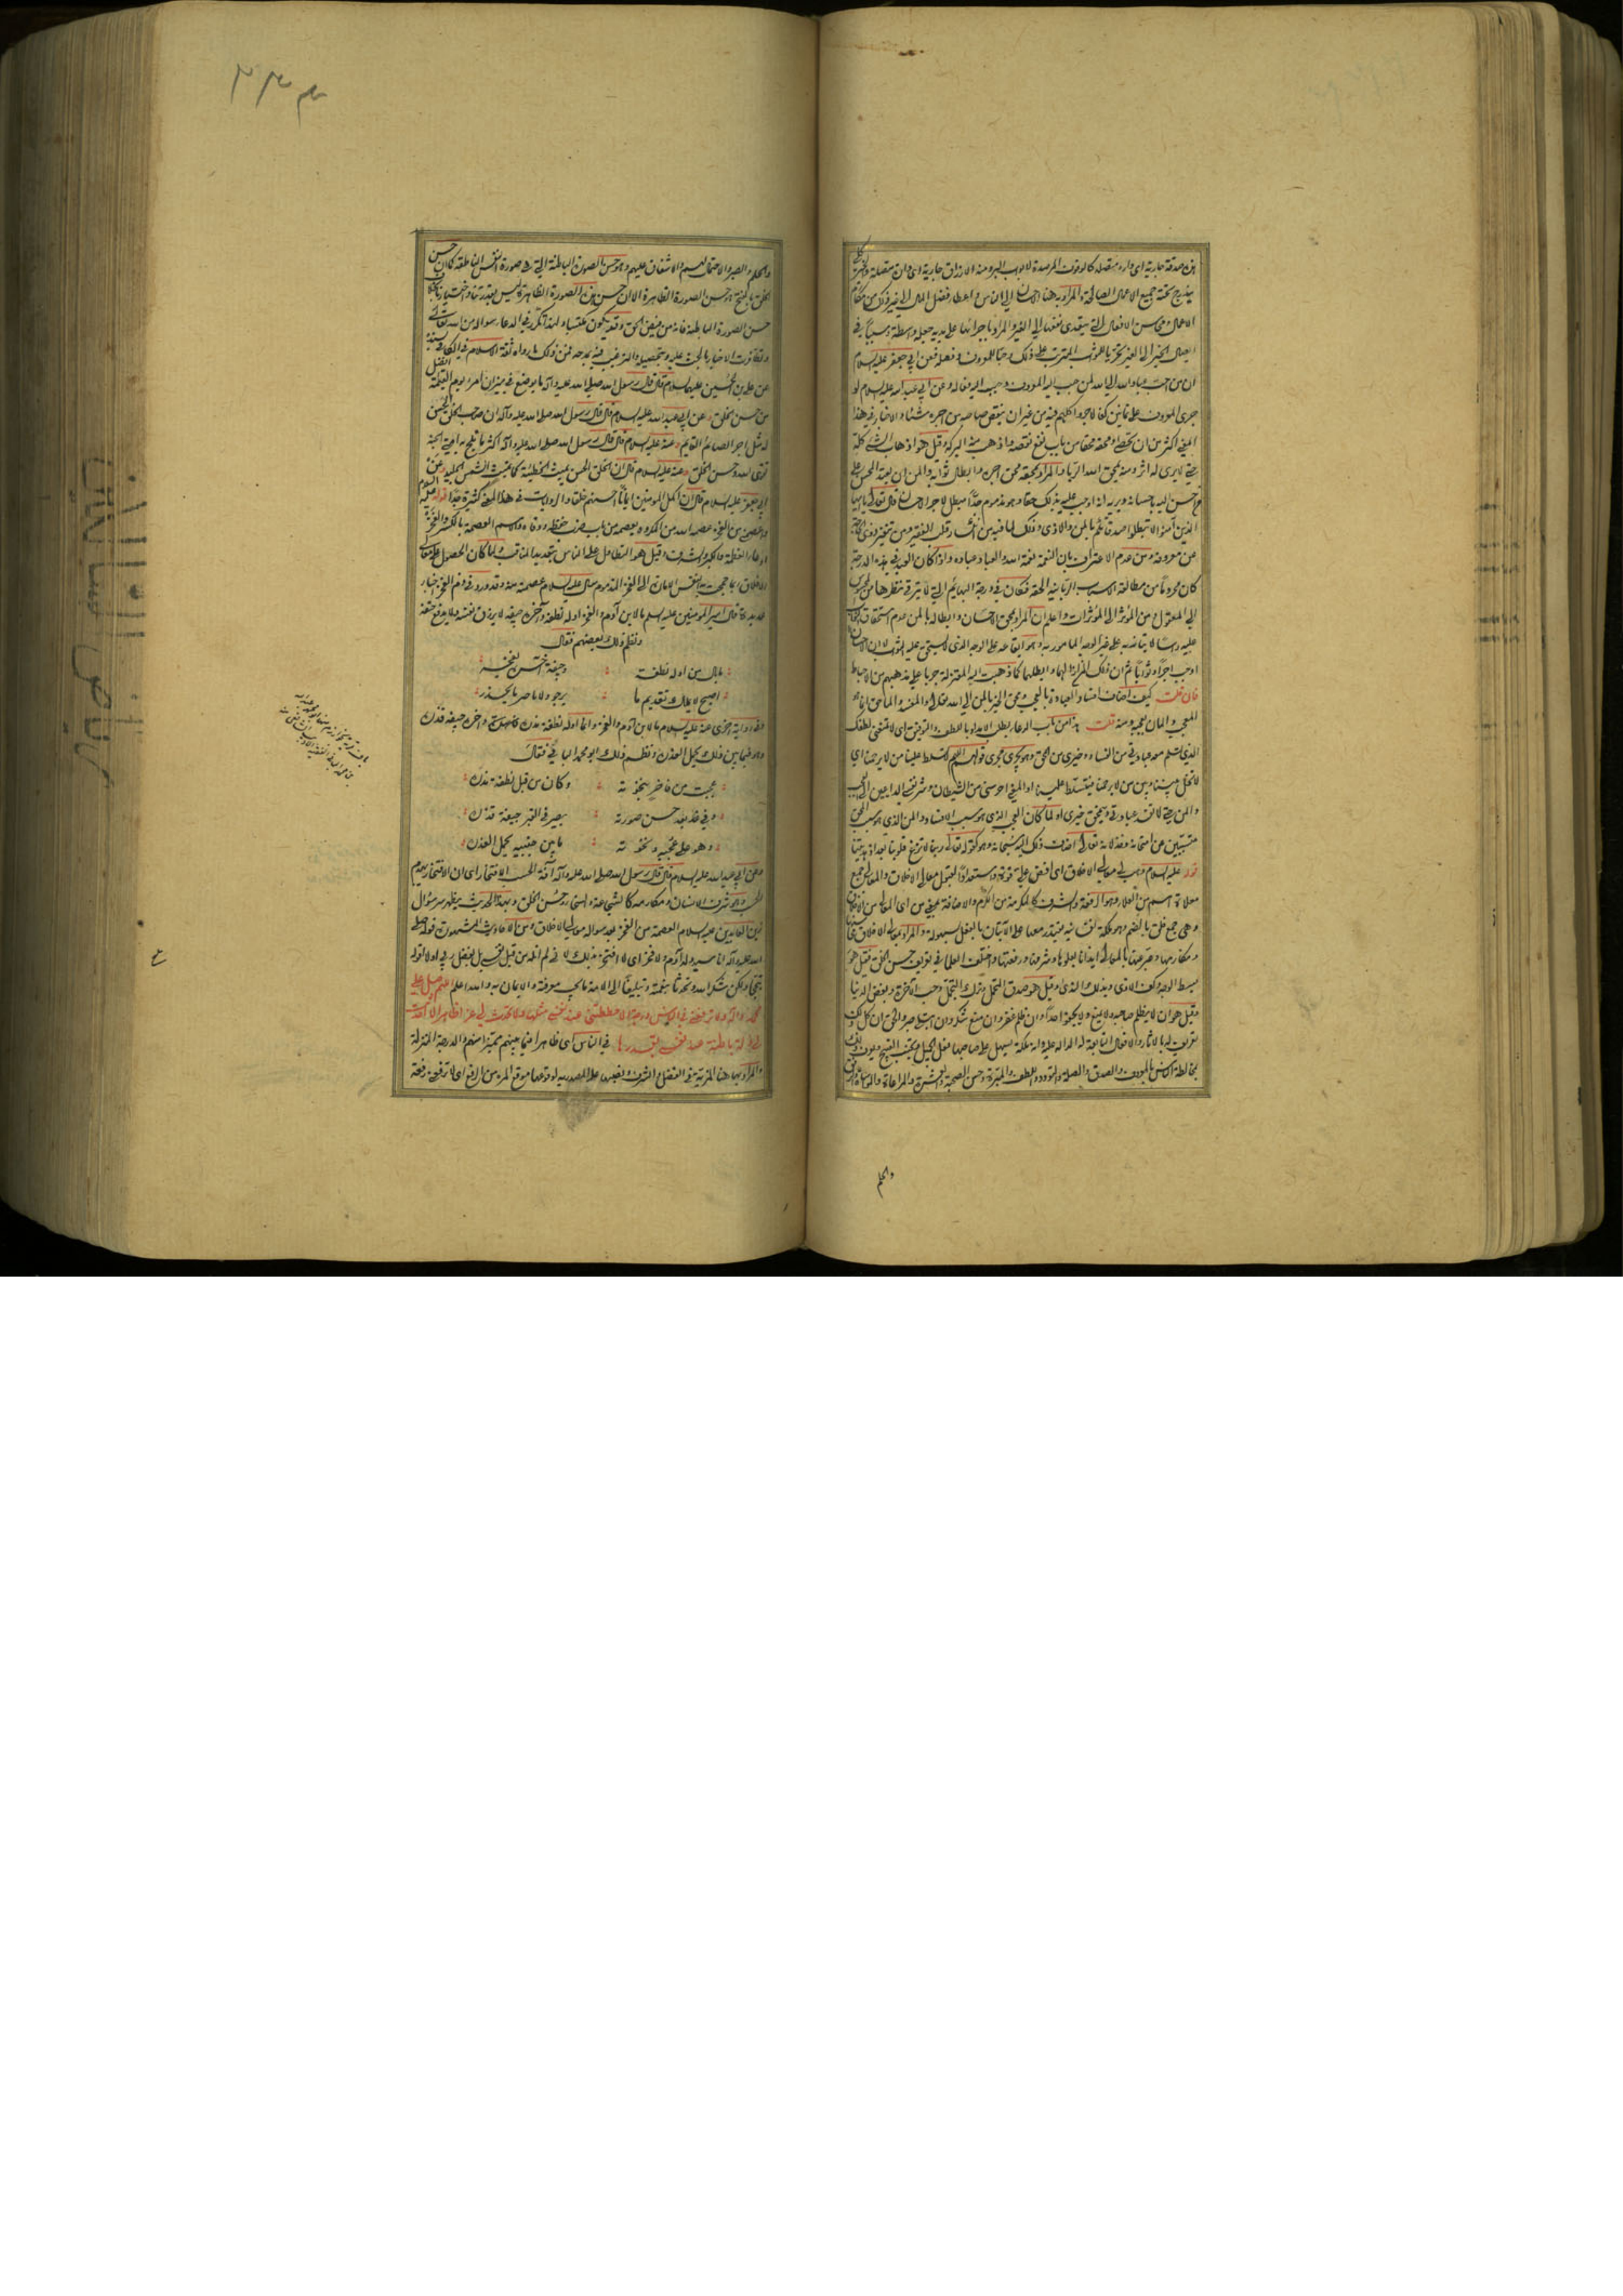 هذه صدقة جارية اى دارة متصلة كالوقوف المرصدة لابواب البر ومنه الارزاق جارية اى دارة متصلة
يندرج تحته جميع الاعمال الصالحة والمراد به هنا الى الناس
الاعمال ومحاسن الافعال التى يتعدى نفعها الى الغير والمراد باجرائها على يديه جعله واسطة وسببا فى
ايصال الخير الى الغير على ذلك وحبا للمعروف وفعله فعن ابى جعفر عليه السلام
ان من احب عباد الله الى الله لمن حبب اليه المعروف وحبب اليه فعاله وعن ابى عبد الله عليه السلام لو
جرى المعروف على ثمانين كفا لاجروا كلهم فيه من غير ان ينقص صاحبه من اجره شيئا والاخبار فى هذا
المعنى اكثر من ان تحصى ومحقه محقا من باب نفع نقصه واذهب منه البركة وقيل هو اذهاب الشىء كله
حتى لا يرى له اثر ومنه يمحق الله الربا والمراد بمحقه محق اجره وابطال ثوابه والمن ان يعتد المحسن على
من احسن اليه باحسانه ويريه انه اوجب عليه بذلك حقا وهو مذموم جدا مبطل لاجر الاحسان قال تعالى يا ايها
الذين آمنوا لا تبطلوا صدقاتكم بالمن والاذى وذلك لما فيه من انكسار قلب الفقير ومن تنفير ذوى الحاجة
عن معروفه ومن عدم الاعتراف بان النعمة نعمة الله والعباد عباده واذا كان العبد فى هذه الدرجة
كان محروما من مطالعة الاسباب الربانية الحقة فكان فى درجة البهائم التى لا يترقى نظرها من المحسوس
الى المعقول ومن المؤثر الى المؤثرات واعلم ان المراد بمحق الاحسان وابطاله بالمن عدم استحقاق الثواب
عليه راسا لاتيانه به على غير الوجه المامور به وهو ايقاعه على الوجه الذى يستحق عليه الثواب لا ان الاحسان
اوجب اجرا وثوابا ثم ان ذلك المن ازالهما وابطلهما كما ذهبت اليه المعتزلة جريا على مذهبهم من الاحباط
فان قلت كيف اضاف افساد العبادة بالعجب ومحق الخير بالمن الى الله تعالى والمفسد والماحق انما هو
المعجب والمان بعجبه ومنه قلت هذا من باب الدعاء بطلب الامداد باللطف والتوفيق اى لا تمنعنى لطفك
الذى تسلم معه عبادتى من الفساد وخيرى من المحق وهو يجرى مجرى قولهم اللهم لا تسلط علينا من لا يرحمنا اى
لا تخل بيننا وبين من لا يرحمنا فيتسلط علينا او المعنى احرسنى من الشيطان وشر نفسى الداعيين الى العجب
والمن حتى لا تفسد عبادتى ويمحق خيرى او لما كان العجب الذى هو سبب الافساد والمن الذى هو سبب المحق
مسببين عن امتحانه وخذلانه تعالى اضاف ذلك اليه سبحانه وهو كقوله تعالى ربنا لا تزغ قلوبنا بعد اذ هديتنا
قوله عليه السلام وهب لى معالى الاخلاق اى افض على قوة واستعدادا لقبول معالى الاخلاق والمعالى جمع
معلاة اسم من العلاء وهو الرفعة والشرف كالمكرمة من الكرم والاضافة بمعنى من اى المعالى من الاخلاق
وهى جمع خلق بالضم وهو ملكة نفسانية يقتدر معها على الاتيان بالفعل بسهولة والمراد بمعالى الاخلاق محاسنها
ومكارمها وعبر عنها بالمعالى ايذانا بعلوها وشرفها ورفعتها واختلف العلماء فى تعريف حسن الخلق فقيل هو
بسط الوجه وكف الاذى وبذل الندى وقيل هو صدق التحمل وترك التجمل وحب الآخرة وبغض الدنيا
وقيل هو ان لا يظلم صاحبه ولا يمنع ولا يجفو احدا وان ظلم غفر وان منع شكر وان ابتلى صبر والحق ان كل ذلك
تعريف له بالآثار والافعال التابعة له الدالة عليه وانه ملكة يسهل على صاحبها فعل الجميل وتجنب القبيح ويعرف ذلك
بمخالطة الناس بالمعروف والصدق والصلة والتودد واللطف والمبرة وحسن الصحبة والعشرة والمراعاة والمساواة والرفق
والحلم
٤٣٣
والحلم والصبر والاحتمال لهم والاشفاق عليهم وهو حسن الصورة الباطنة التى هى صورة النفس الناطقة كما ان حسن
الخلق بالفتح هو حسن الصورة الظاهرة الا ان حسن هذه الصورة الظاهرة ليس بقدرتنا واختيارنا بخلاف
حسن الصورة الباطنة فانه من فيض الحق وقد يكون مكتسبا ولهذا تكرر فى الدعاء سواله من الله تعالى
وتظافرت الاخبار بالحث عليه وتحصيله والترغيب فيه ومدحه فمن ذلك ما رواه ثقة الاسلام فى الكافى بسنده
عن على بن الحسين عليهما السلام قال قال رسول الله صلى الله عليه وآله ما يوضع فى ميزان امرئ يوم القيمة افضل
من حسن الخلق وعن ابى عبد الله عليه السلام قال قال رسول الله صلى الله عليه وآله ان صاحب الخلق الحسن
له مثل اجر الصائم القائم وعنه عليه السلام قال قال رسول الله صلى الله عليه وآله اكثر ما تلج به امتى الجنة
تقوى الله وحسن الخلق وعنه عليه السلام قال ان الخلق الحسن يميث الخطيئة كما تميث الشمس الجليد وعن
ابى جعفر عليه السلام قال ان اكمل المومنين ايمانا احسنهم خلقا والروايات فى هذا المعنى كثيرة جدا قوله عليه السلام
واعصمنى من الفخر عصمه الله من المكروه يعصمه من باب ضرب حفظه ووقاه والاسم العصمة بالكسر والفخر
ادعاء العظمة والكبر والشرف وقيل هو التطاول على الناس بتعديد المناقب ولما كان الحصول على معالى
الاخلاق ربما جمحت به النفس الامارة الى الفخر المذموم سال عليه السلام عصمته منه وقد ورد فى ذم الفخر اخبار
عديدة قال امير المومنين عليه السلم ما لابن آدم والفخر اوله نطفة وآخره جيفة لا يرزق نفسه ولا يدفع حتفه
ونظم ذلك بعضهم فقال
ما بال من اوله نطفة : وجيفة آخره يفخر
اصبح لا يملك تقديم ما : يرجو ولا تاخير ما يحذر
وفى رواية اخرى عنه عليه السلام ما لابن آدم والفخر وانما اوله نطفة مذرة وآخره جيفة قذرة
وهو فيما بين ذلك يحمل العذرة ونظم ذلك ابو محمد البافى فقال
عجبت من فاخر بنخوته : وكان من قبل نطفة مذرة
وفى غد بعد حسن صورته : يصير فى القبر جيفة قذرة
وهو على عجبه ونخوته : ما بين جنبيه يحمل العذرة
وعن ابى عبد الله عليه السلام قال قال رسول الله صلى الله عليه وآله آفة الحسب الافتخار اى ان الافتخار يهدم
الحسب وهو شرف الانسان ومكارمه كالشجاعة والسخاء وحسن الخلق وبهذا الحديث يظهر سر سؤال
زين العابدين عليه السلام العصمة من الفخر بعد سواله معالى الاخلاق ومن الاحاديث المشهورة قوله صلى
الله عليه وآله انا سيد ولد آدم ولا فخر اى لا افتخر بذلك لانى لم انله من قبل نفسى بل بفضل ربى او لا اقوله
تبجحا ولكن شكرا لله وتحدثا بنعمته وتبليغا الى الامة ما يجب معرفته والايمان به والله اعلم اللهم صل على
محمد وآله ولا ترفعنى فى الناس درجة الا حططتنى عند نفسى مثلها ولا تحدث لى عزا ظاهرا الا احدثت
لى ذلة باطنة عند نفسى بقدرها فى الناس اى ظاهرا فيما بينهم متميزا منهم والدرجة المنزلة
والمراد بها هنا المزية فى الفضل والشرف ونصبها على المصدرية لوقوعها موقع المرة من الرفع اى لا ترفعنى رفعة